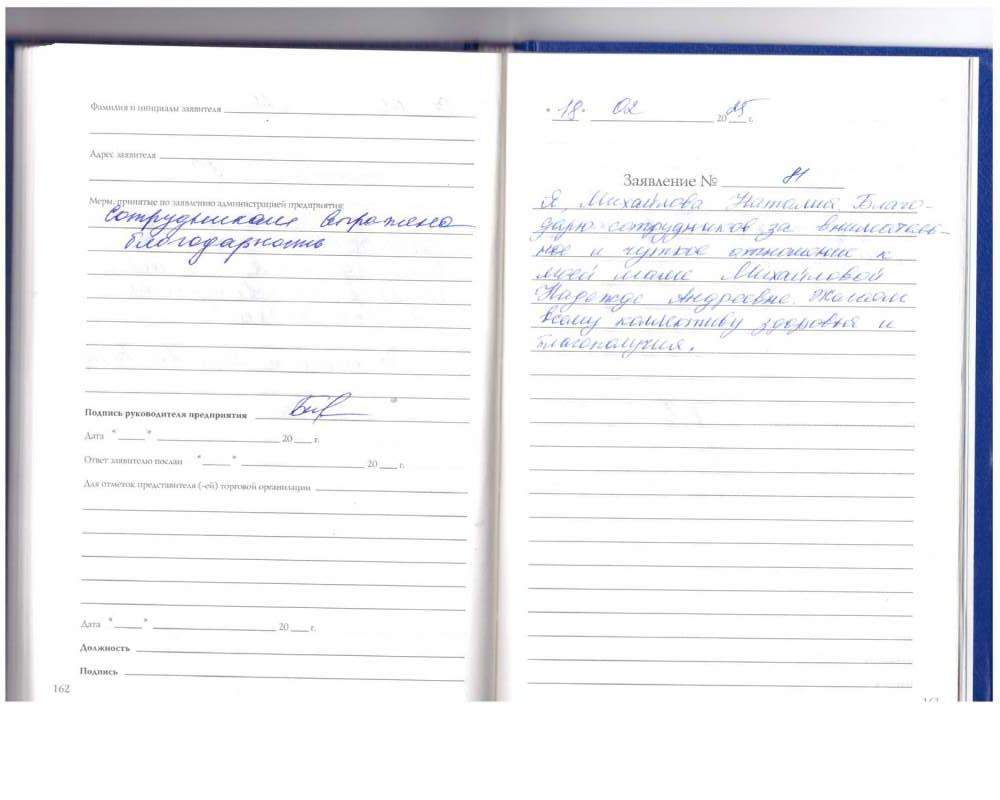 Фамилия и инициалы заявителя
Адрес заявителя
Меры, принятые по заявлению администрацией предприятия:
Сотрудникам выражена
благодарность
Подпись руководителя предприятия
Дата " " 20 г.
Ответ заявителю послан " " 20 г.
Для отметок представителя (-ей) торговой организации
Дата " " 20 г.
Должность
Подпись
162
" 18 " 02 2025 г.
Заявление № 81
Я, Михайлова Наталия, Благо-
дарю сотрудников за вниматель-
ное и чуткое отношение к
моей маме Михайловой
Надежде Андреевне. Желаем
всему коллективу здоровья и
благополучия.